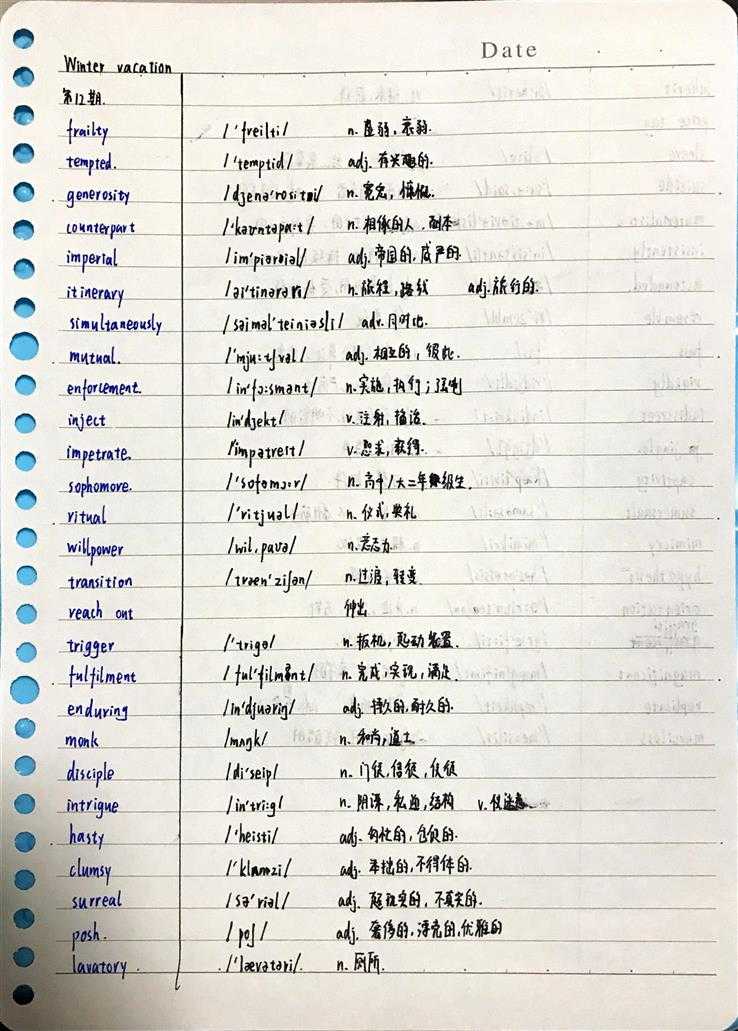 Date
Winter vacation
第12期.
frailty /'freilti/ n. 虚弱, 衰弱.
tempted. /'temptid/ adj. 有兴趣的.
generosity n. 宽宏, 慷慨.
counterpart n. 相像的人, 副本
imperial /im'piəriəl/ adj. 帝国的, 威严的.
itinerary /ai'tinərəri/ n. 旅程, 路线 adj. 旅行的.
simultaneously adv. 同时地.
mutual. /'mju:tʃuəl/ adj. 相互的, 彼此.
enforcement. /in'fɔ:smənt/ n. 实施, 执行; 强制
inject /in'dʒekt/ v. 注射, 插话.
impetrate. /'impətreit/ v. 恳求, 获得.
sophomore. /'sofəmɔ:r/ n. 高中/大二年级生.
ritual /'ritjuəl/ n. 仪式, 典礼
willpower /wil,pauə/ n. 意志力
transition n. 过渡, 转变.
reach out 伸出
trigger /'trigə/ n. 扳机, 起动装置.
fulfilment /ful'filmənt/ n. 完成, 实现, 满足.
enduring /in'djuəriŋ/ adj. 持久的, 耐久的.
monk /mʌŋk/ n. 和尚, 道士
disciple n. 门徒, 信徒, 使徒
intrigue /in'tri:g/ n. 阴谋, 私通, 结构 v.
hasty /'heisti/ adj. 匆忙的, 仓促的.
clumsy /'klʌmzi/ adj. 笨拙的, 不得体的.
surreal /sə'riəl/ adj. 超现实的, 不真实的.
posh. /poʃ/ adj. 奢侈的, 漂亮的, 优雅的
lavatory /'lævətəri/. n. 厕所.